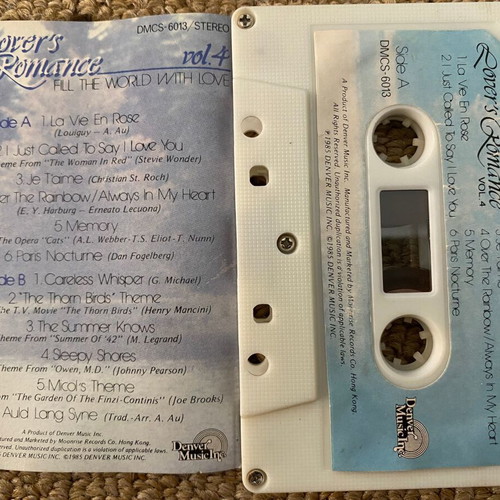 DMCS-6013/STEREO
Lover's
Romance
vol.4
FILL THE WORLD WITH LOVE
de A 1.La Vie En Rose
(Louiguy — A. Au)
2.I Just Called To Say I Love You
eme From "The Woman In Red" (Stevie Wonder)
3.Je T'aime (Christian St. Roch)
er The Rainbow/Always In My Heart
(E. Y. Harburg — Erneato Lecuona)
5.Memory
The Opera "Cats" (A.L. Webber·T.S. Eliot·T. Nunn)
6.Paris Nocturne (Dan Fogelberg)
de B 1.Careless Whisper (G. Michael)
2."The Thorn Birds" Theme
The T.V. Movie "The Thorn Birds" (Henry Mancini)
3.The Summer Knows
eme From "Summer Of '42" (M. Legrand)
4.Sleepy Shores
Theme From "Owen, M.D." (Johnny Pearson)
5.Micol's Theme
om "The Garden Of The Finzi-Continis" (Joe Brooks)
Auld Lang Syne (Trad.-Arr. A. Au)
A Product of Denver Music Inc.
tured and Marketed by Moonrise Records Co. Hong Kong.
ed. Unauthorized duplication is a violation of applicable laws.
DENVER MUSIC INC. ©1985 DENVER MUSIC INC.
Denver
Music Inc
Lover's Romance
VOL. 4
Side A
DMCS-6013
1.La Vie En Rose
2.I Just Called To Say I Love You
4.Over The Rainbow/Always In My Heart
5.Memory
6.Paris Nocturne
A Product of Denver Music Inc. Manufactured and Marketed by Moonrise Records Co. Hong Kong.
All Rights Reserved. Unauthorized duplication is a violation of applicable laws.
℗1985 DENVER MUSIC INC. ©1985 DENVER MUSIC INC.
Denver
Music Inc